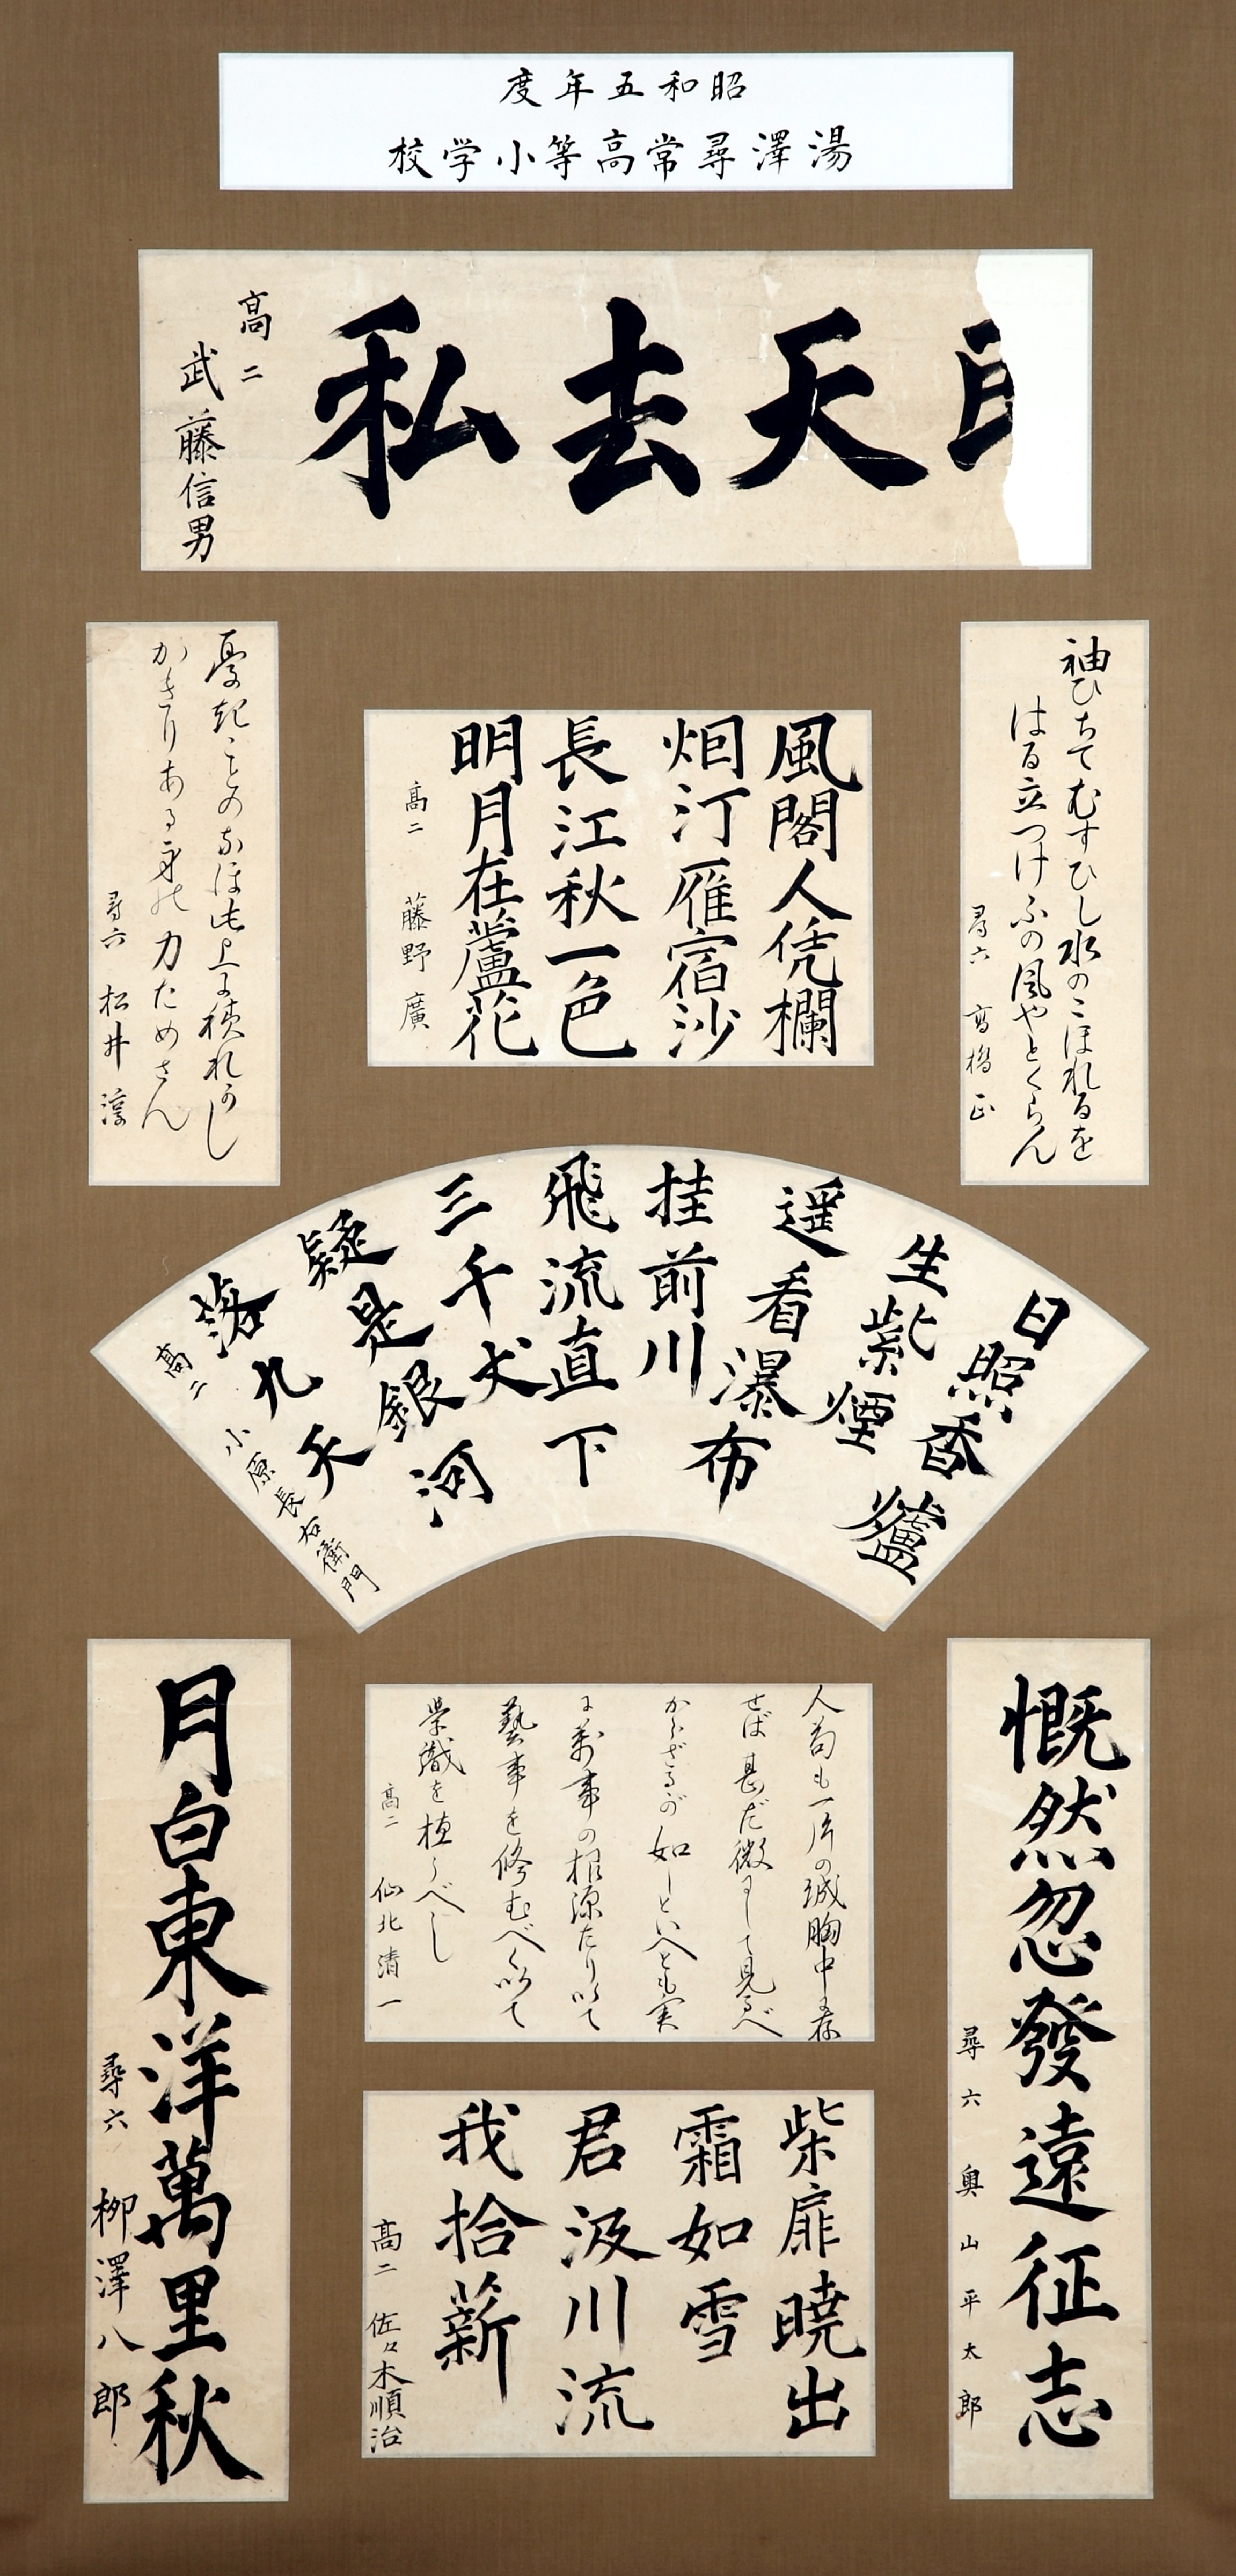 昭和五年度
湯澤尋常高等小学校
天去私
高二
武藤信男
袖ひちてむすひし水のこほれるを
はる立つけふの風やとくらん
尋六 高橋正
風閣人凭欄
烟汀雁宿沙
長江秋一色
明月在蘆花
高二 藤野廣
憂きことのなほ此上に積れかし
かきりある身の力ためさん
尋六 松井淳
日照香爐
生紫煙
遥看瀑布
挂前川
飛流直下
三千丈
疑是銀河
落九天
高二
小原長右衛門
慨然忽發遠征志
尋六 奥山平太郎
人苟も一片の誠胸中に存
せば甚だ微にして見るべ
からざるが如しといへども実
に萬事の根源たり以て
藝事を修むべく以て
学識を植うべし
高二 仙北清一
柴扉曉出
霜如雪
君汲川流
我拾薪
高二 佐々木順治
月白東洋萬里秋
尋六 柳澤八郎